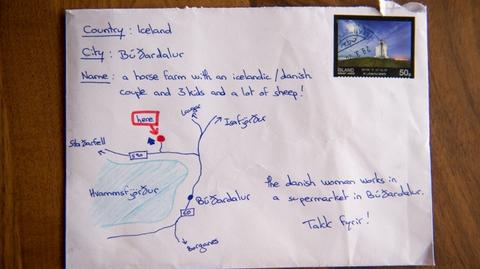 Country : Iceland
City : Búðardalur
Name : a horse farm with an icelandic/danish
couple and 3 kids and a lot of sheep!
ÍSLAND
50g
here
Laugar
Isafjörður
Staðarfell
590
Hvammsfjörður
Búðardalur
60
Borganes
the danish women works in
a supermarket in Búðardalur.
Takk fyrir!